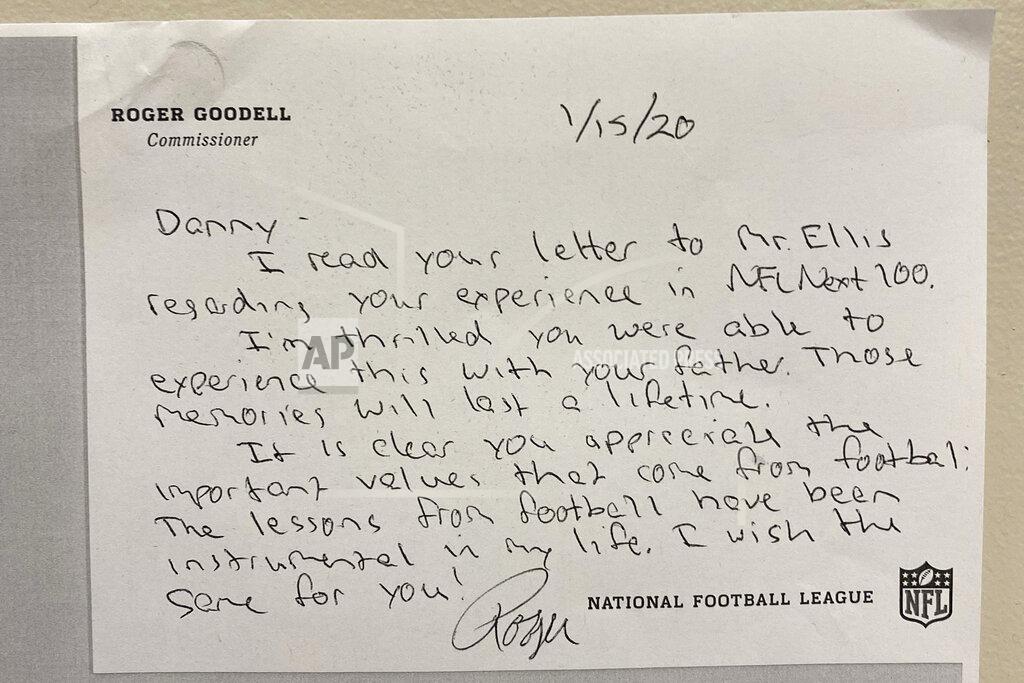 ROGER GOODELL
Commissioner
1/15/20
Danny -
I read your letter to Mr. Ellis
regarding your experience in NFL Next 100.
I'm thrilled you were able to
experience this with your father. Those
memories will last a lifetime.
It is clear you appreciate the
important values that come from football.
The lessons from football have been
instrumental in my life. I wish the
same for you!
Roger
NATIONAL FOOTBALL LEAGUE
NFL
AP
ASSOCIATED PRESS